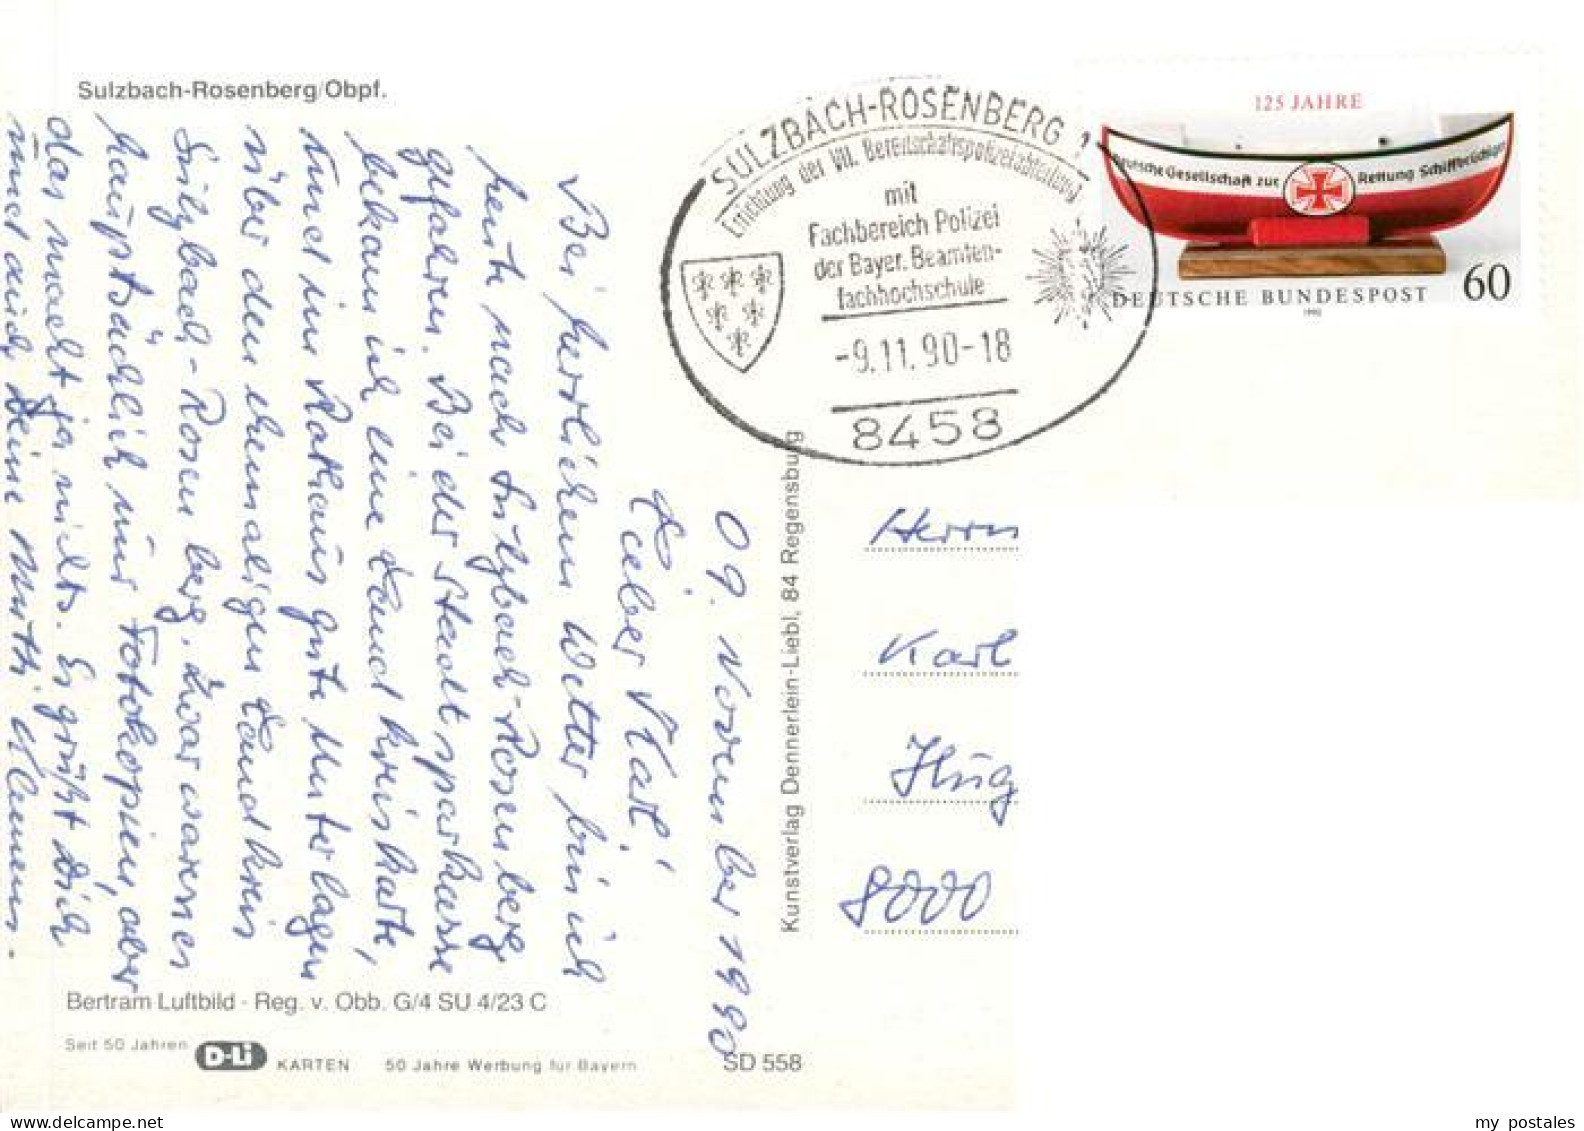 Sulzbach-Rosenberg/Obpf.
SULZBACH-ROSENBERG 1
Errichtung der VII. Bereitschaftspolizeiabteilung
mit
Fachbereich Polizei
der Bayer. Beamten-
fachhochschule
-9.11.90-18
8458
125 JAHRE
Deutsche Gesellschaft zur Rettung Schiffbrüchiger
DEUTSCHE BUNDESPOST 60
1990
09. November 1990
Lieber Karl!
Bei herrlichem Wetter bin ich
heute nach Sulzbach-Rosenberg
gefahren. Bei der Stadtsparkasse
bekam ich eine Landkreiskarte,
und im Rathaus gute Unterlagen
über den ehemaligen Landkreis
Sulzbach-Rosenberg. Zwar waren es
hauptsächlich nur Fotokopien, aber
das macht ja nichts. Es grüßt Dich
und auch Deine Mutti Clemens.
Herrn
Karl
8000
Kunstverlag Dennerlein-Liebl, 84 Regensburg
Bertram Luftbild - Reg. v. Obb. G/4 SU 4/23 C
Seit 50 Jahren D-Li KARTEN 50 Jahre Werbung für Bayern
SD 558
my postales